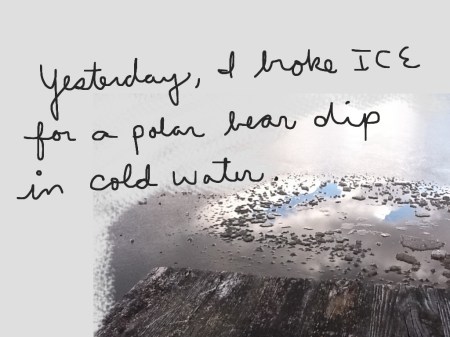 Yesterday, I broke ICE
for a polar bear dip
in cold water.